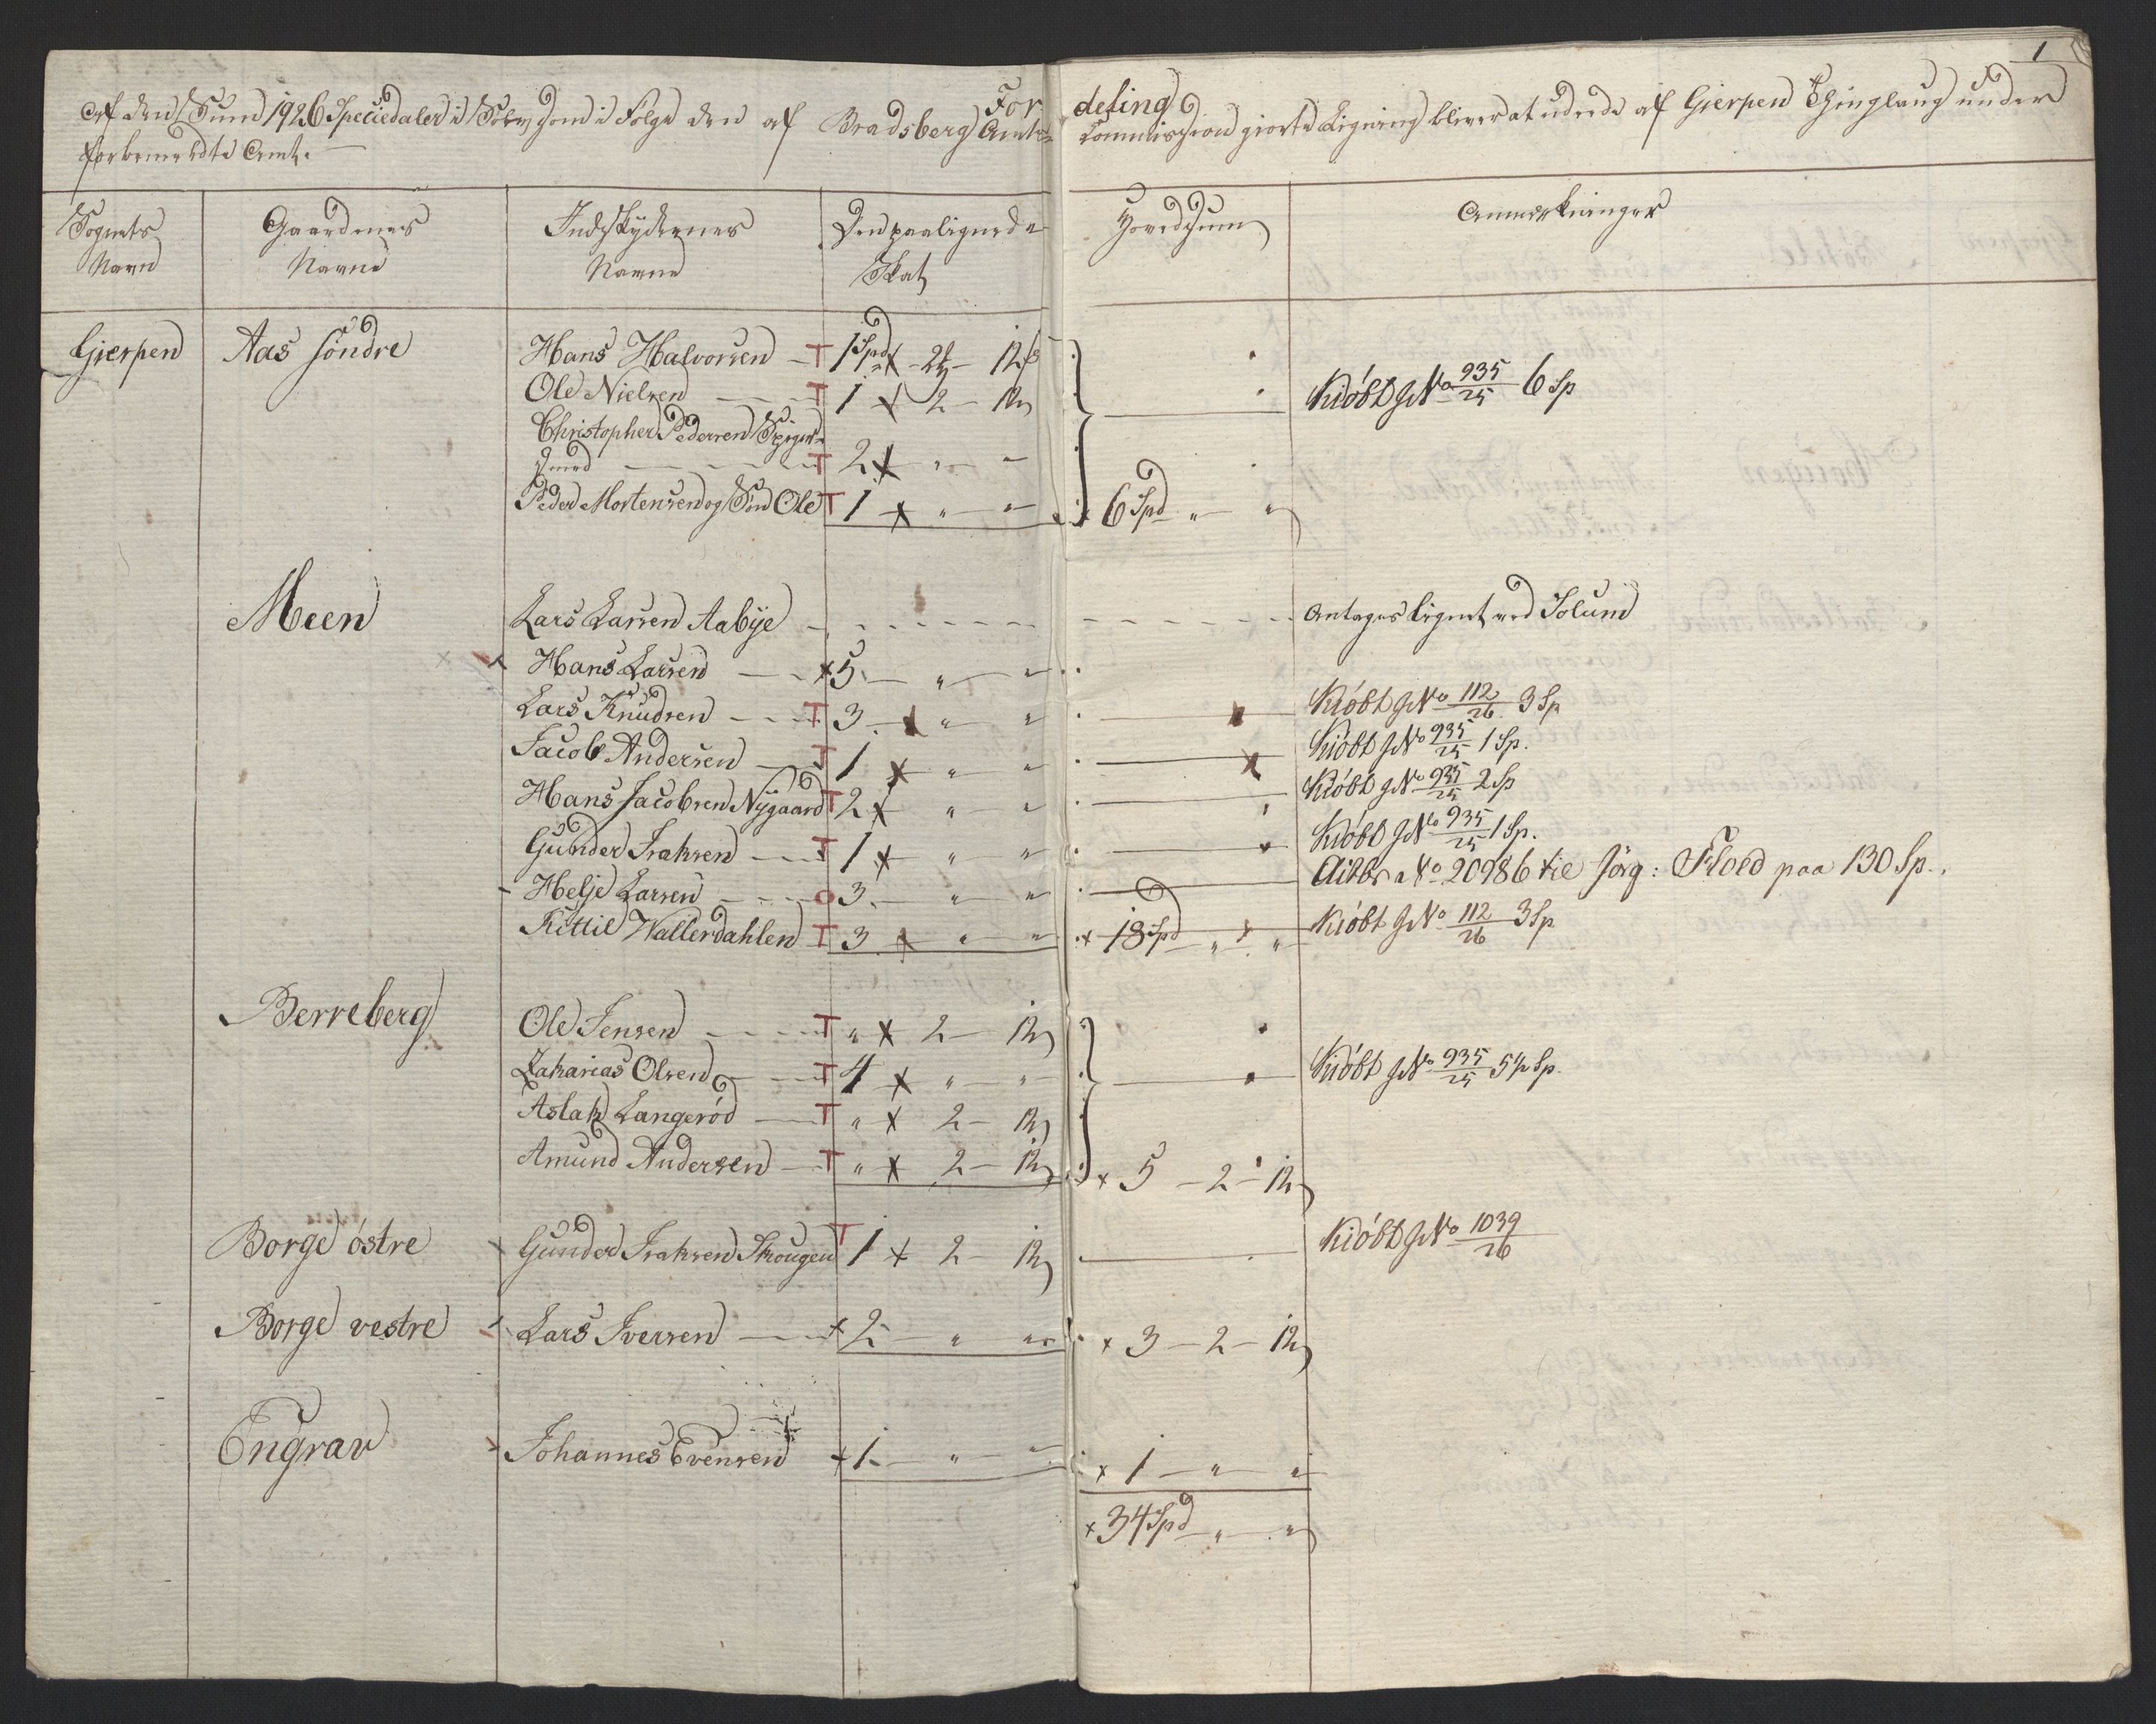 1
Fordeling
Af den Sum 1926 Speciedaler i Sølv, som i Følge den af Bradsberg Amts Commission giorte Ligning bliver at udrede af Gierpen Thinglaug under
forbemeldte Amt.
Sognets Navn | Gaardenes Navne | Indskydernes Navne | Den paalignede Skat | Hovedsum | Anmerkninger
Gierpen Aas søndre Hans Halvorsen T 1 Spd x - 2 - 12 ß
Ole Nielsen T 1 x 2 - 12 Kiøbt JNo 935/25 6 Sp
Christopher Pedersen Spiger-
smed T 2 x " "
Peder Mortensen og Søn Ole T 1 x " " x 6 Spd " "
Meen Lars Larsen Aabye - - - - - - Antages lignet ved Solum
Hans Larsen x 5 " "
Lars Knudsen T 3 x " " Kiøbt JNo 112/26 3 Sp
Jacob Andersen T 1 x " " x Kiøbt JNo 935/25 1 Sp.
Hans Jacobsen Nygaard T 2 x " " Kiøbt JNo 935/25 2 Sp
Gunder Isaksen T 1 x " " Kiøbt JNo 935/25 1 Sp.
Helje Larsen o 3 " " No 20986 til Jørg: Floed paa 130 Sp.
Kittil Wallerdahlen T 3 x " " x 18 Spd " " Kiøbt JNo 112/26 3 Sp
Berreberg Ole Jensen T " x 2 - 12
Zakarias Olsen T 4 x " " Kiøbt JNo 935/25 5½ Sp.
Aslak Langerød T " x 2 - 12
Amund Andersen T " x 2 - 12 x 5 - 2 - 12
Borge østre Gunder Isaksen Skougen T 1 x 2 - 12 Kiøbt JNo 1039/26
Borge vestre Lars Iversen x 2 " " x 3 - 2 - 12
Engrav Johannes Evensen x 1 " " x 1 - " - "
x 34 Spd " "